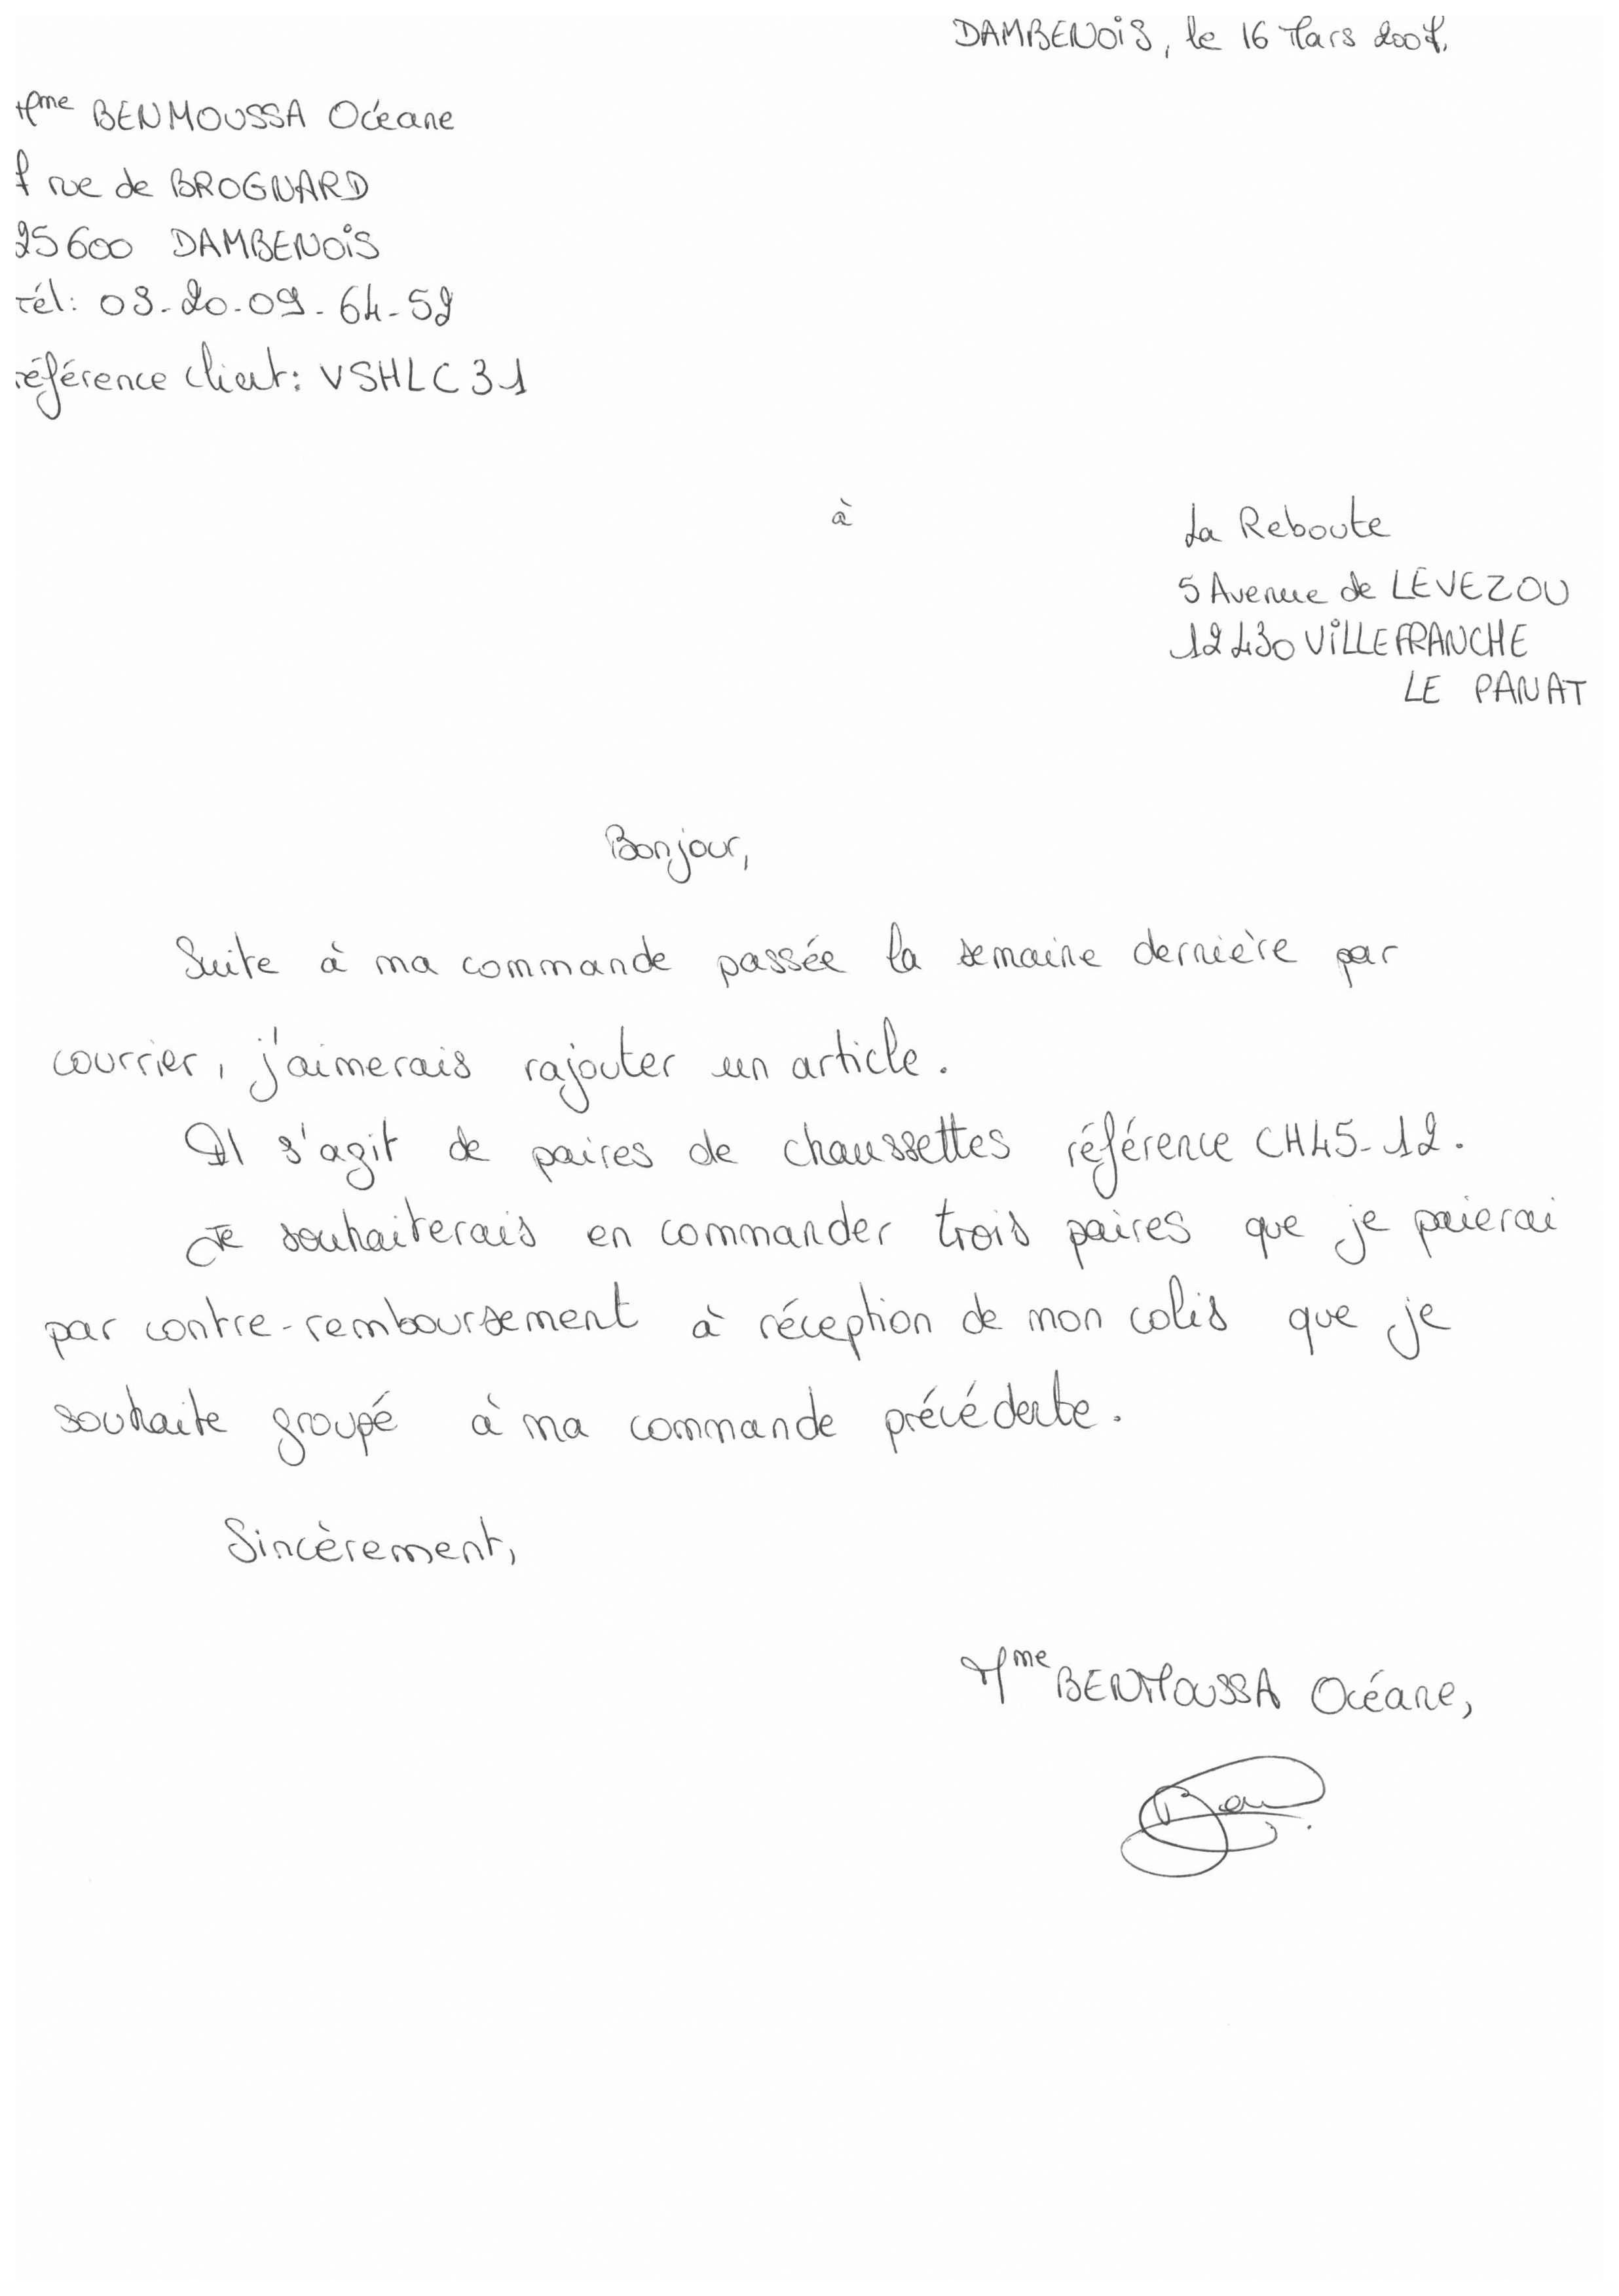 DAMBENOIS, le 16 Mars 2007.
Mme BENMOUSSA Océane
7 rue de BROGNARD
25600 DAMBENOIS
Tél: 03-20-09-64-59
référence client: VSHLC31
à
La Reboute
5 Avenue de LEVEZOU
12430 VILLEFRANCHE
LE PANAT
Bonjour,
Suite à ma commande passée la semaine dernière par
courrier, j'aimerais rajouter un article.
Il s'agit de paires de chaussettes référence CH45-12.
Je souhaiterais en commander trois paires que je paierai
par contre-remboursement à réception de mon colis que je
souhaite groupé à ma commande précédente.
Sincèrement,
Mme BENMOUSSA Océane,
Ben